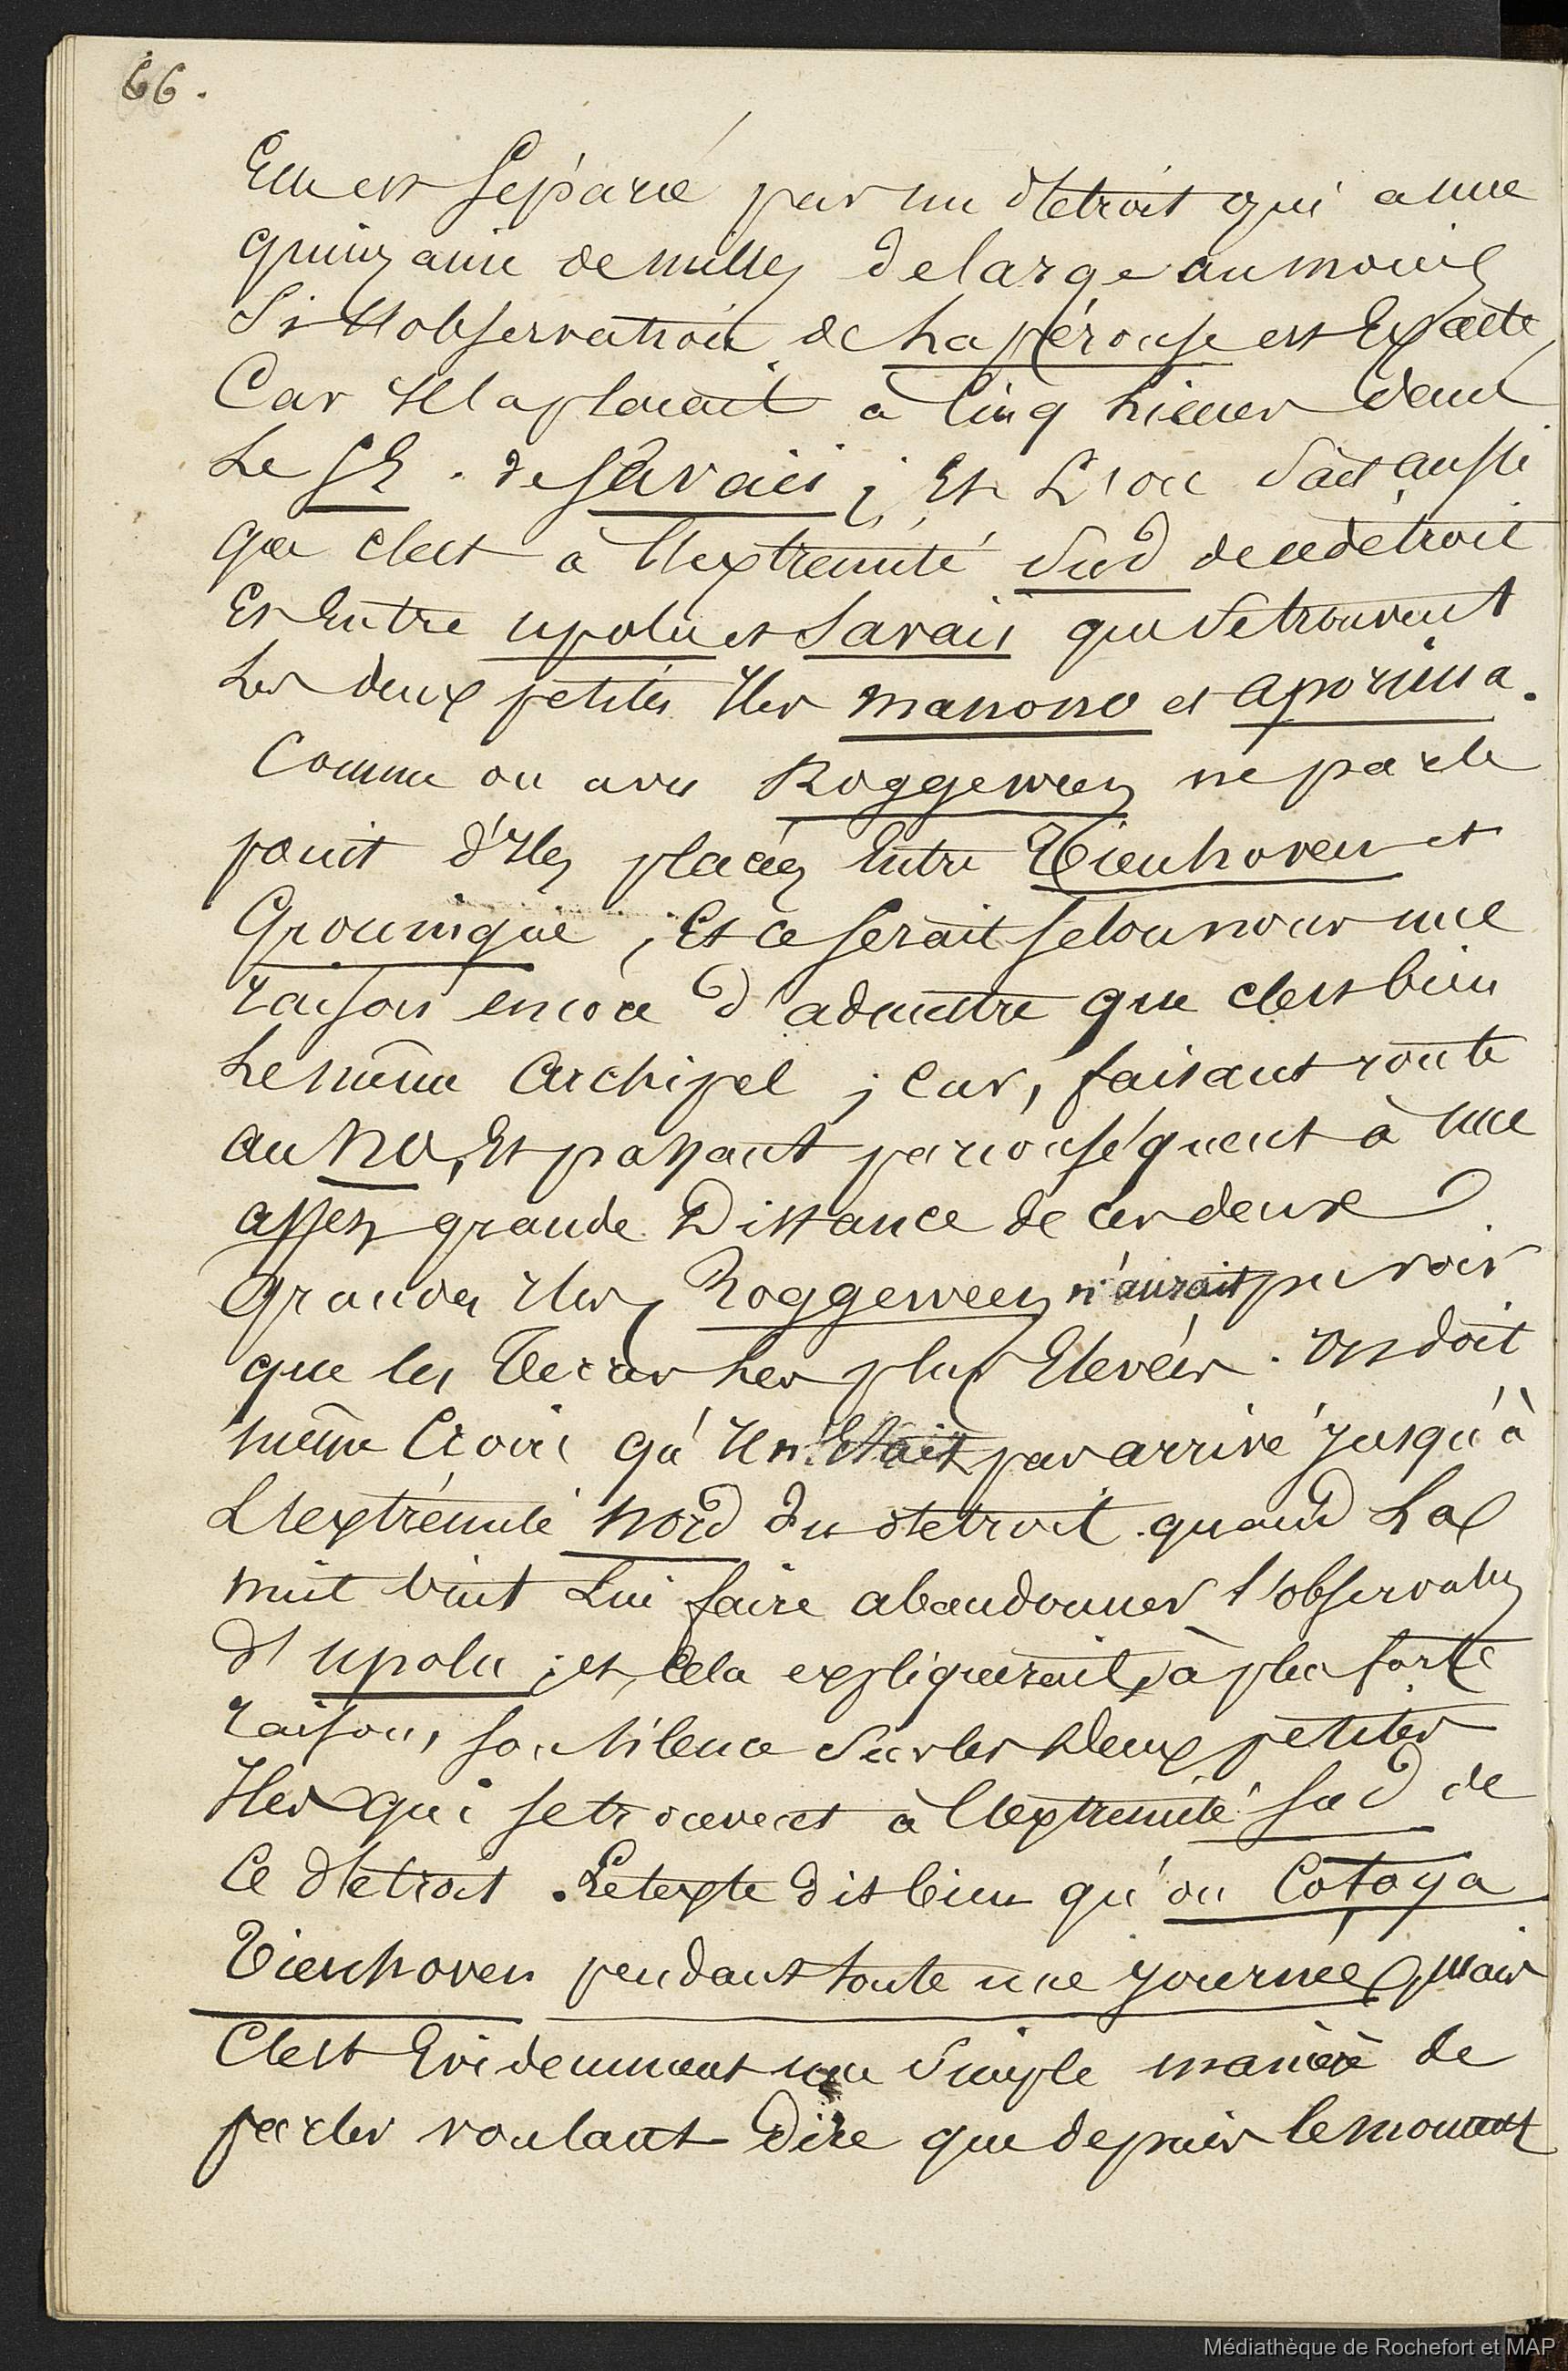 66.
Elle est séparée par un détroit qui a une
quinzaine de milles de large au moins
Si l'observation de Lapérouse est Exacte,
Car Il la plaçait à Cinq Lieues dans
Le SE. de Savaii ; Et L'on sait aussi
que c'est à l'extrémité Sud de ce détroit
Et Entre upolu et Savaii que se trouvent
Les deux petites Iles manono et apolima.
Comme on a vu Roggeween ne parle
point d'Iles placées Entre Tienhoven et
Groningue ; Et ce serait selon nous une
raison encore d'admettre que c'est bien
Le même Archipel ; Car, faisant route
au NO, Et passant par conséquent à une
assez grande Distance de ces deux
grandes Iles, Roggeween n'aurait pu voir
que les Terres Les plus Elevées. On doit
même Croire qu'Il n'Etait pas arrivé jusqu'à
L'extrémité Nord du détroit quand La
nuit vint Lui faire abandonner l'observation
d'upolu ; et, Cela expliquerait, à plus forte
raison, son silence Sur les Deux petites
Iles qui se trouvent à l'extrémité Sud de
Ce détroit. Le texte dit bien qu'on Cotoya
Tienhoven pendant toute une journée, mais
C'est Evidemment une Simple manière de
parler voulant Dire que depuis le moment
Médiathèque de Rochefort et MAP